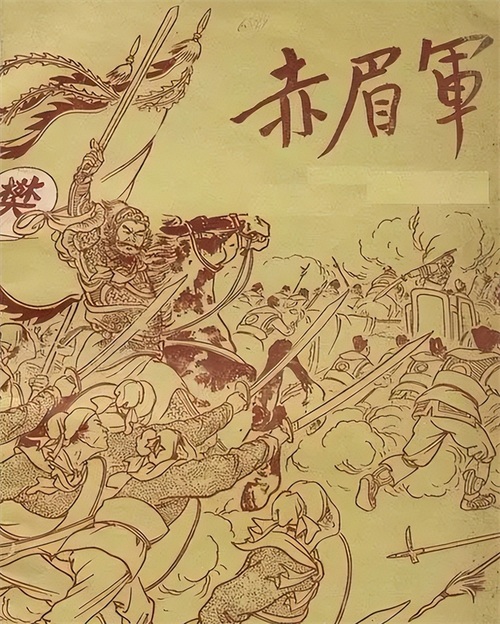 赤眉軍
樊